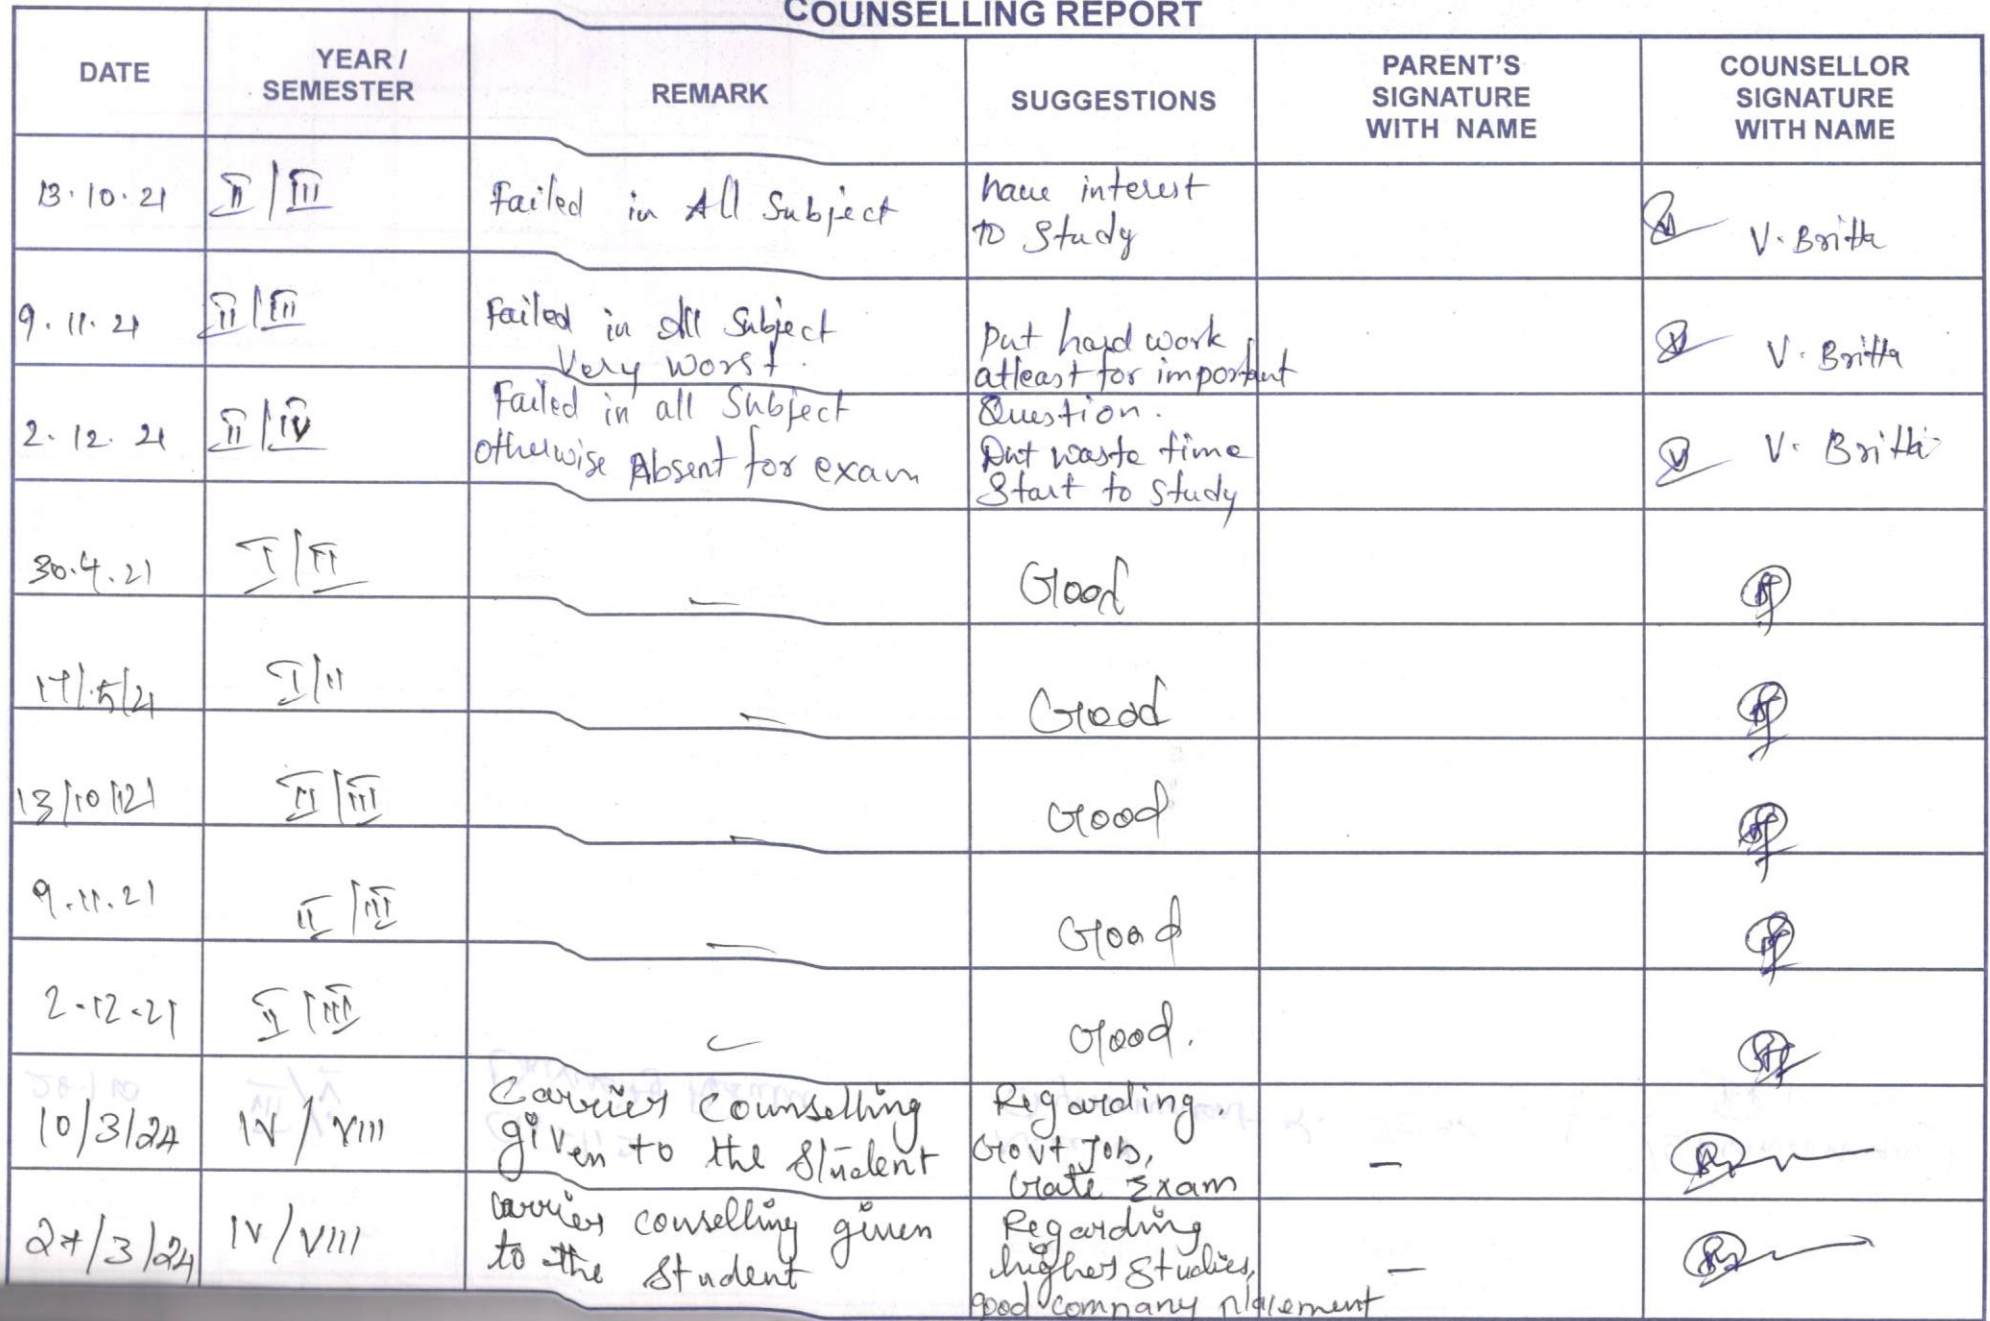 COUNSELLING REPORT
DATE
YEAR /
SEMESTER
REMARK
SUGGESTIONS
PARENT'S
SIGNATURE
WITH NAME
COUNSELLOR
SIGNATURE
WITH NAME
13.10.21
II/III
Failed in All Subject
have interest
to Study
V. Britta
9.11.21
II/III
Failed in all Subject
Very worst.
put hard work
atleast for important
Question.
V. Britta
2.12.21
II/IV
Failed in all Subject
otherwise Absent for exam
Dnt waste time
Start to study
V. Britta
30.4.21
I/II
—
Good
17/5/21
I/II
—
Good
13/10/21
II/III
—
Good
9.11.21
II/III
—
Good
2.12.21
II/III
Good.
10/3/24
IV/VIII
Carrier Counselling
given to the Student
Regarding
Govt Job,
Gate Exam
—
27/3/24
IV/VIII
Carrier couselling given
to the Student
Regarding
higher Studies,
good company placement
—